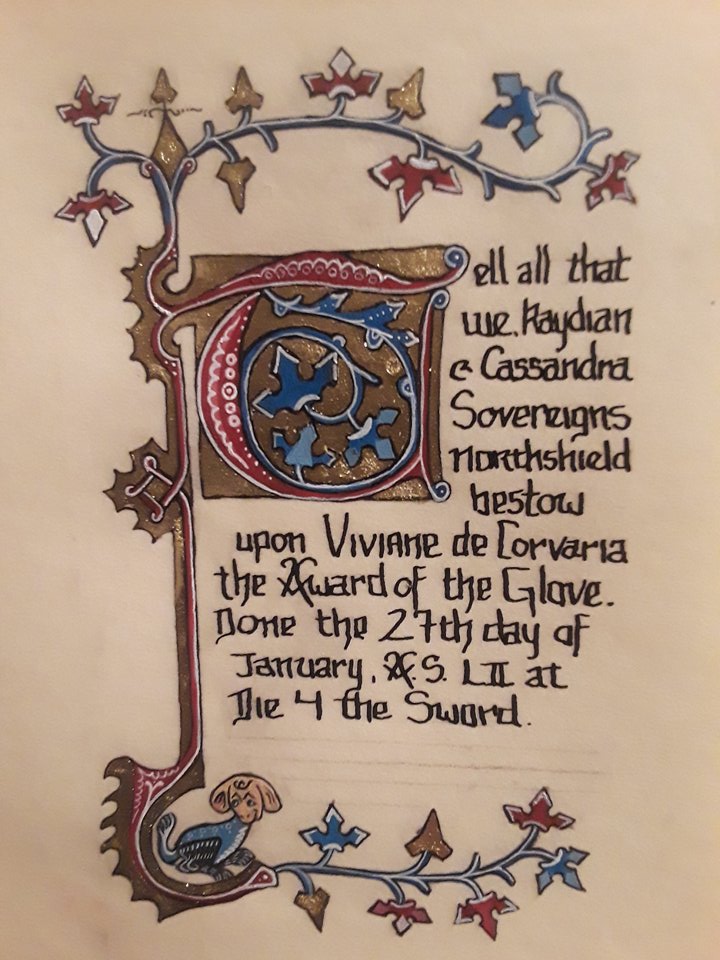 Tell all that
we, Kaydian
& Cassandra
Sovereigns
Northshield
bestow
upon Viviane de Corvaria
the Award of the Glove.
Done the 27th day of
January, A.S. LII at
Die 4 the Sword.